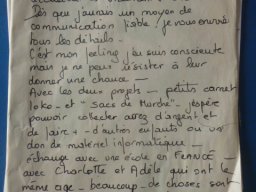 Dès que j'aurais un moyen de
communication fiable, je vous enverrai
tous les détails.
C'est mon feeling, j'en suis consciente,
mais je ne peux résister à leur
donner une chance —
Avec les deux projets — petits carnets
loko — et "sacs de Marche" — j'espère
pouvoir collecter assez d'argent et
de faire + d'autres enfants ou
don de matériel informatique —
échange avec une école en FRANCE —
avec Charlotte et Adèle qui ont le
même age — beaucoup de choses sont